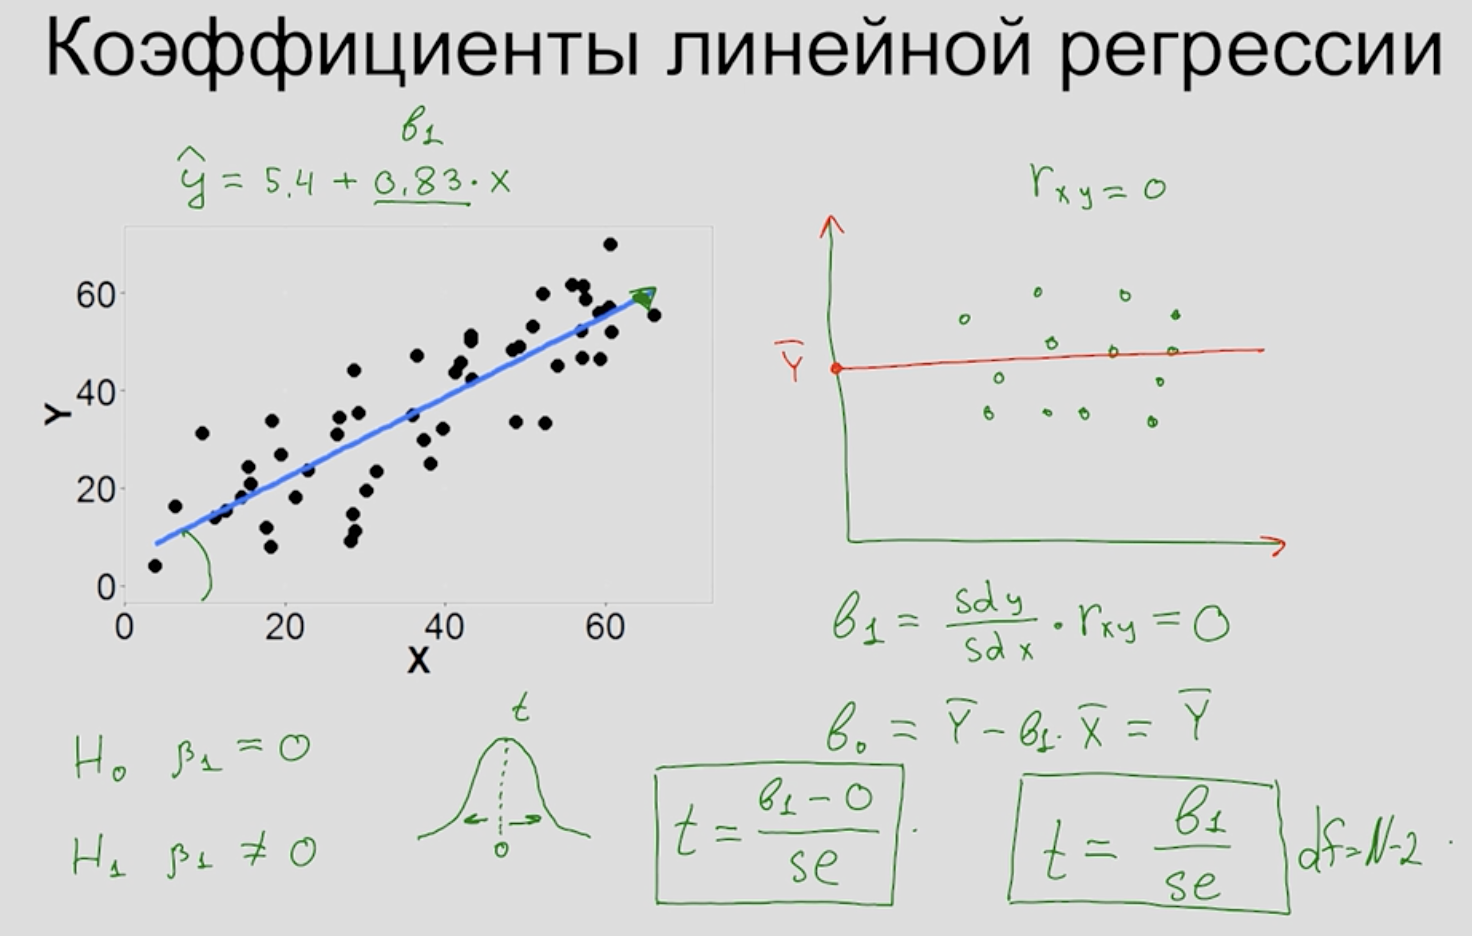 Коэффициенты линейной регрессии
b₁
ŷ = 5,4 + 0,83 · x
Y
60
40
20
0
0 20 40 60
X
r xy = 0
Y̅
b₁ = sd y / sd x · r xy = 0
b₀ = Y̅ - b₁ · X̅ = Y̅
H₀ β₁ = 0
H₁ β₁ ≠ 0
t
0
t = b₁ - 0 / se
t = b₁ / se
df = N-2